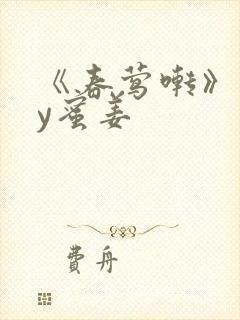 《春莺啭》
y蜜姜
费舟